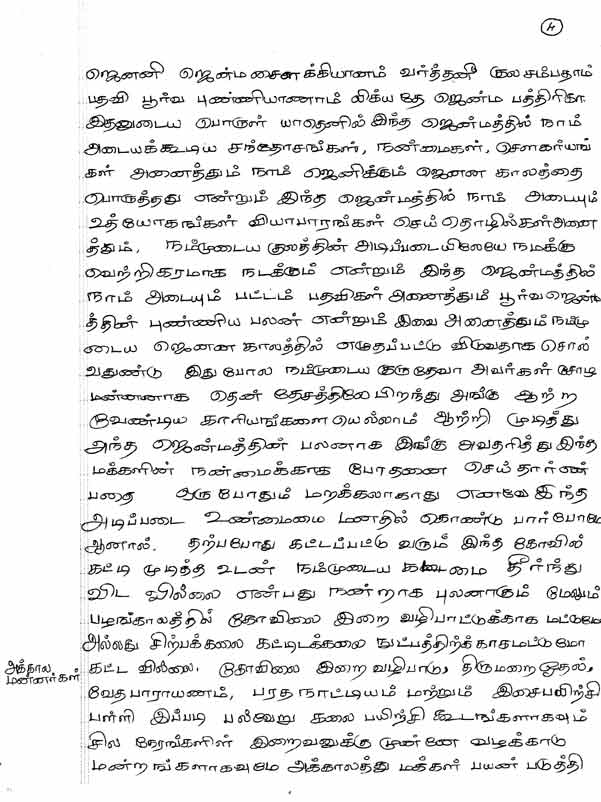 4
ஜெனனி ஜென்மசௌக்கியானம் வர்த்தனீ குல சம்பதாம்
பதவி பூர்வ புண்ணியாணாம் லிக்யதே ஜென்ம பத்திரிகா
இதனுடைய பொருள் யாதெனில் இந்த ஜென்மத்தில் நாம்
அடையக்கூடிய சந்தோசங்கள், நன்மைகள், சௌகர்யங்
கள் அனைத்தும் நாம் ஜெனிக்கும் ஜெனன காலத்தை
பொருத்தது என்றும் இந்த ஜென்மத்தில் நாம் அடையும்
உத்யோகங்கள் வியாபாரங்கள் செய் தொழில்கள் அனை
த்தும், நம்முடைய குலத்தின் அடிப்படையிலேயே நமக்கு
வெற்றிகரமாக நடக்கும் என்றும் இந்த ஜென்மத்தில்
நாம் அடையும் பட்டம் பதவிகள் அனைத்தும் பூர்வஜென்ம
த்தின் புண்ணிய பலன் என்றும் இவை அனைத்தும் நம்மு
டைய ஜெனன காலத்தில் எழுதப்பட்டு விடுவதாக சொல்
வதுண்டு இது போல நம்முடைய குருதேவா அவர்கள் சோழ
மன்னனாக தென் தேசத்திலே பிறந்து அங்கு ஆற்ற
வேண்டிய காரியங்களை யெல்லாம் ஆற்றி முடித்து
அந்த ஜென்மத்தின் பலனாக இங்கு அவதரித்து இந்த
மக்களின் நன்மைக்காக போதனை செய்தார் என்
பதை ஒருபோதும் மறக்கலாகாது எனவே இந்த
அடிப்படை உண்மையை மனதில் கொண்டு பார்போமே
ஆனால். தற்பபோது கட்டப்பட்டு வரும் இந்த கோவில்
கட்டி முடித்த உடன் நம்முடைய கடமை தீர்ந்து
விட வில்லை என்பது நன்றாக புலனாகும் மேலும்
பழங்காலத்தில் கோவிலை இறை வழிபாட்டுக்காக மட்டுமே
அல்லது சிற்பக்கலை கட்டிடக்கலை நுட்பத்திற்காகமட்டுமோ
அக்கால மன்னர்கள் கட்ட வில்லை. கோவிலை இறை வழிபாடு, திருமறை ஓதல்,
வேதபாராயணம், பரத நாட்டியம் மற்றும் இசைபயிற்சி
பள்ளி இப்படி பல்வேறு கலை பயிற்சி கூடங்களாகவும்
சில நேரங்களில் இறைவனுக்கு முன்னே வழக்காடு
மன்றங்களாகவுமே அக்காலத்து மக்கள் பயன் படுத்தி